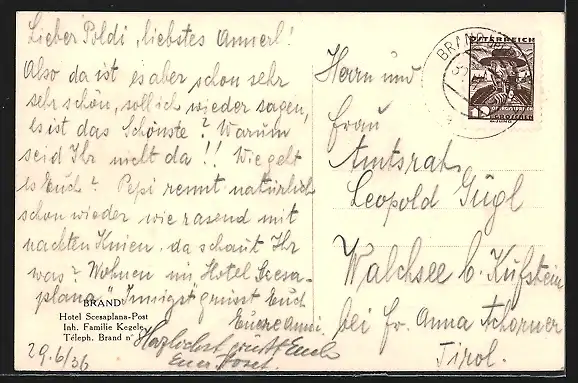 Lieber Poldi, liebstes Annerl!
Also da ist es aber schon sehr
sehr schön, soll ich wieder sagen,
es ist das Schönste? Warum
seid Ihr nicht da!! Wie geht
es Euch? Pepi rennt natürlich
schon wieder wie rasend mit
nackten Knien, da schaut Ihr
was? Wohnen im Hotel Scesa-
plana. Innigst grüsst Euch
Euere
Herzlichst grüsst Euch
Euer Josef.
29.6/36
BRAND
Hotel Scesaplana-Post
Inh. Familie Kegele,
Téleph. Brand n°
BRAND
ÖSTERREICH
12
GROSCHEN
Herrn und
Frau
Amtsrat
Leopold Gügl
Walchsee b. Kufstein
bei Fr. Anna
Tirol.